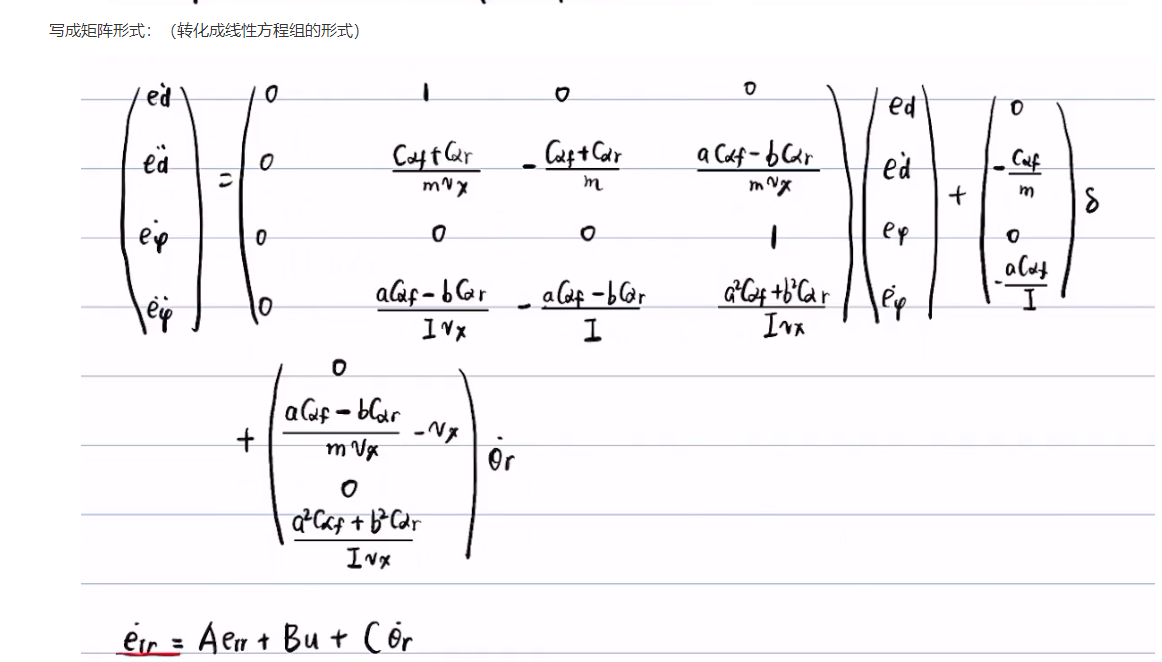 写成矩阵形式：（转化成线性方程组的形式）
(ėd; ëd; ėφ; ëφ) = (0 1 0 0; 0 (Cαf+Cαr)/(mvx) -(Cαf+Cαr)/m (aCαf-bCαr)/(mvx); 0 0 0 1; 0 (aCαf-bCαr)/(Ivx) -(aCαf-bCαr)/I (a²Cαf+b²Cαr)/(Ivx)) (ed; ėd; eφ; ėφ) + (0; -Cαf/m; 0; -aCαf/I) δ
+ (0; (aCαf-bCαr)/(mvx) -vx; 0; (a²Cαf+b²Cαr)/(Ivx)) θ̇r
ėrr = Aerr + Bu + Cθ̇r